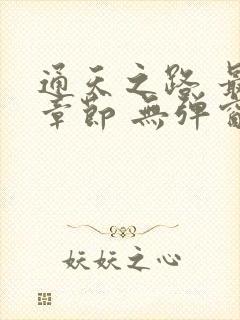 通天之路 最
章節 無弹窗
妖妖之心